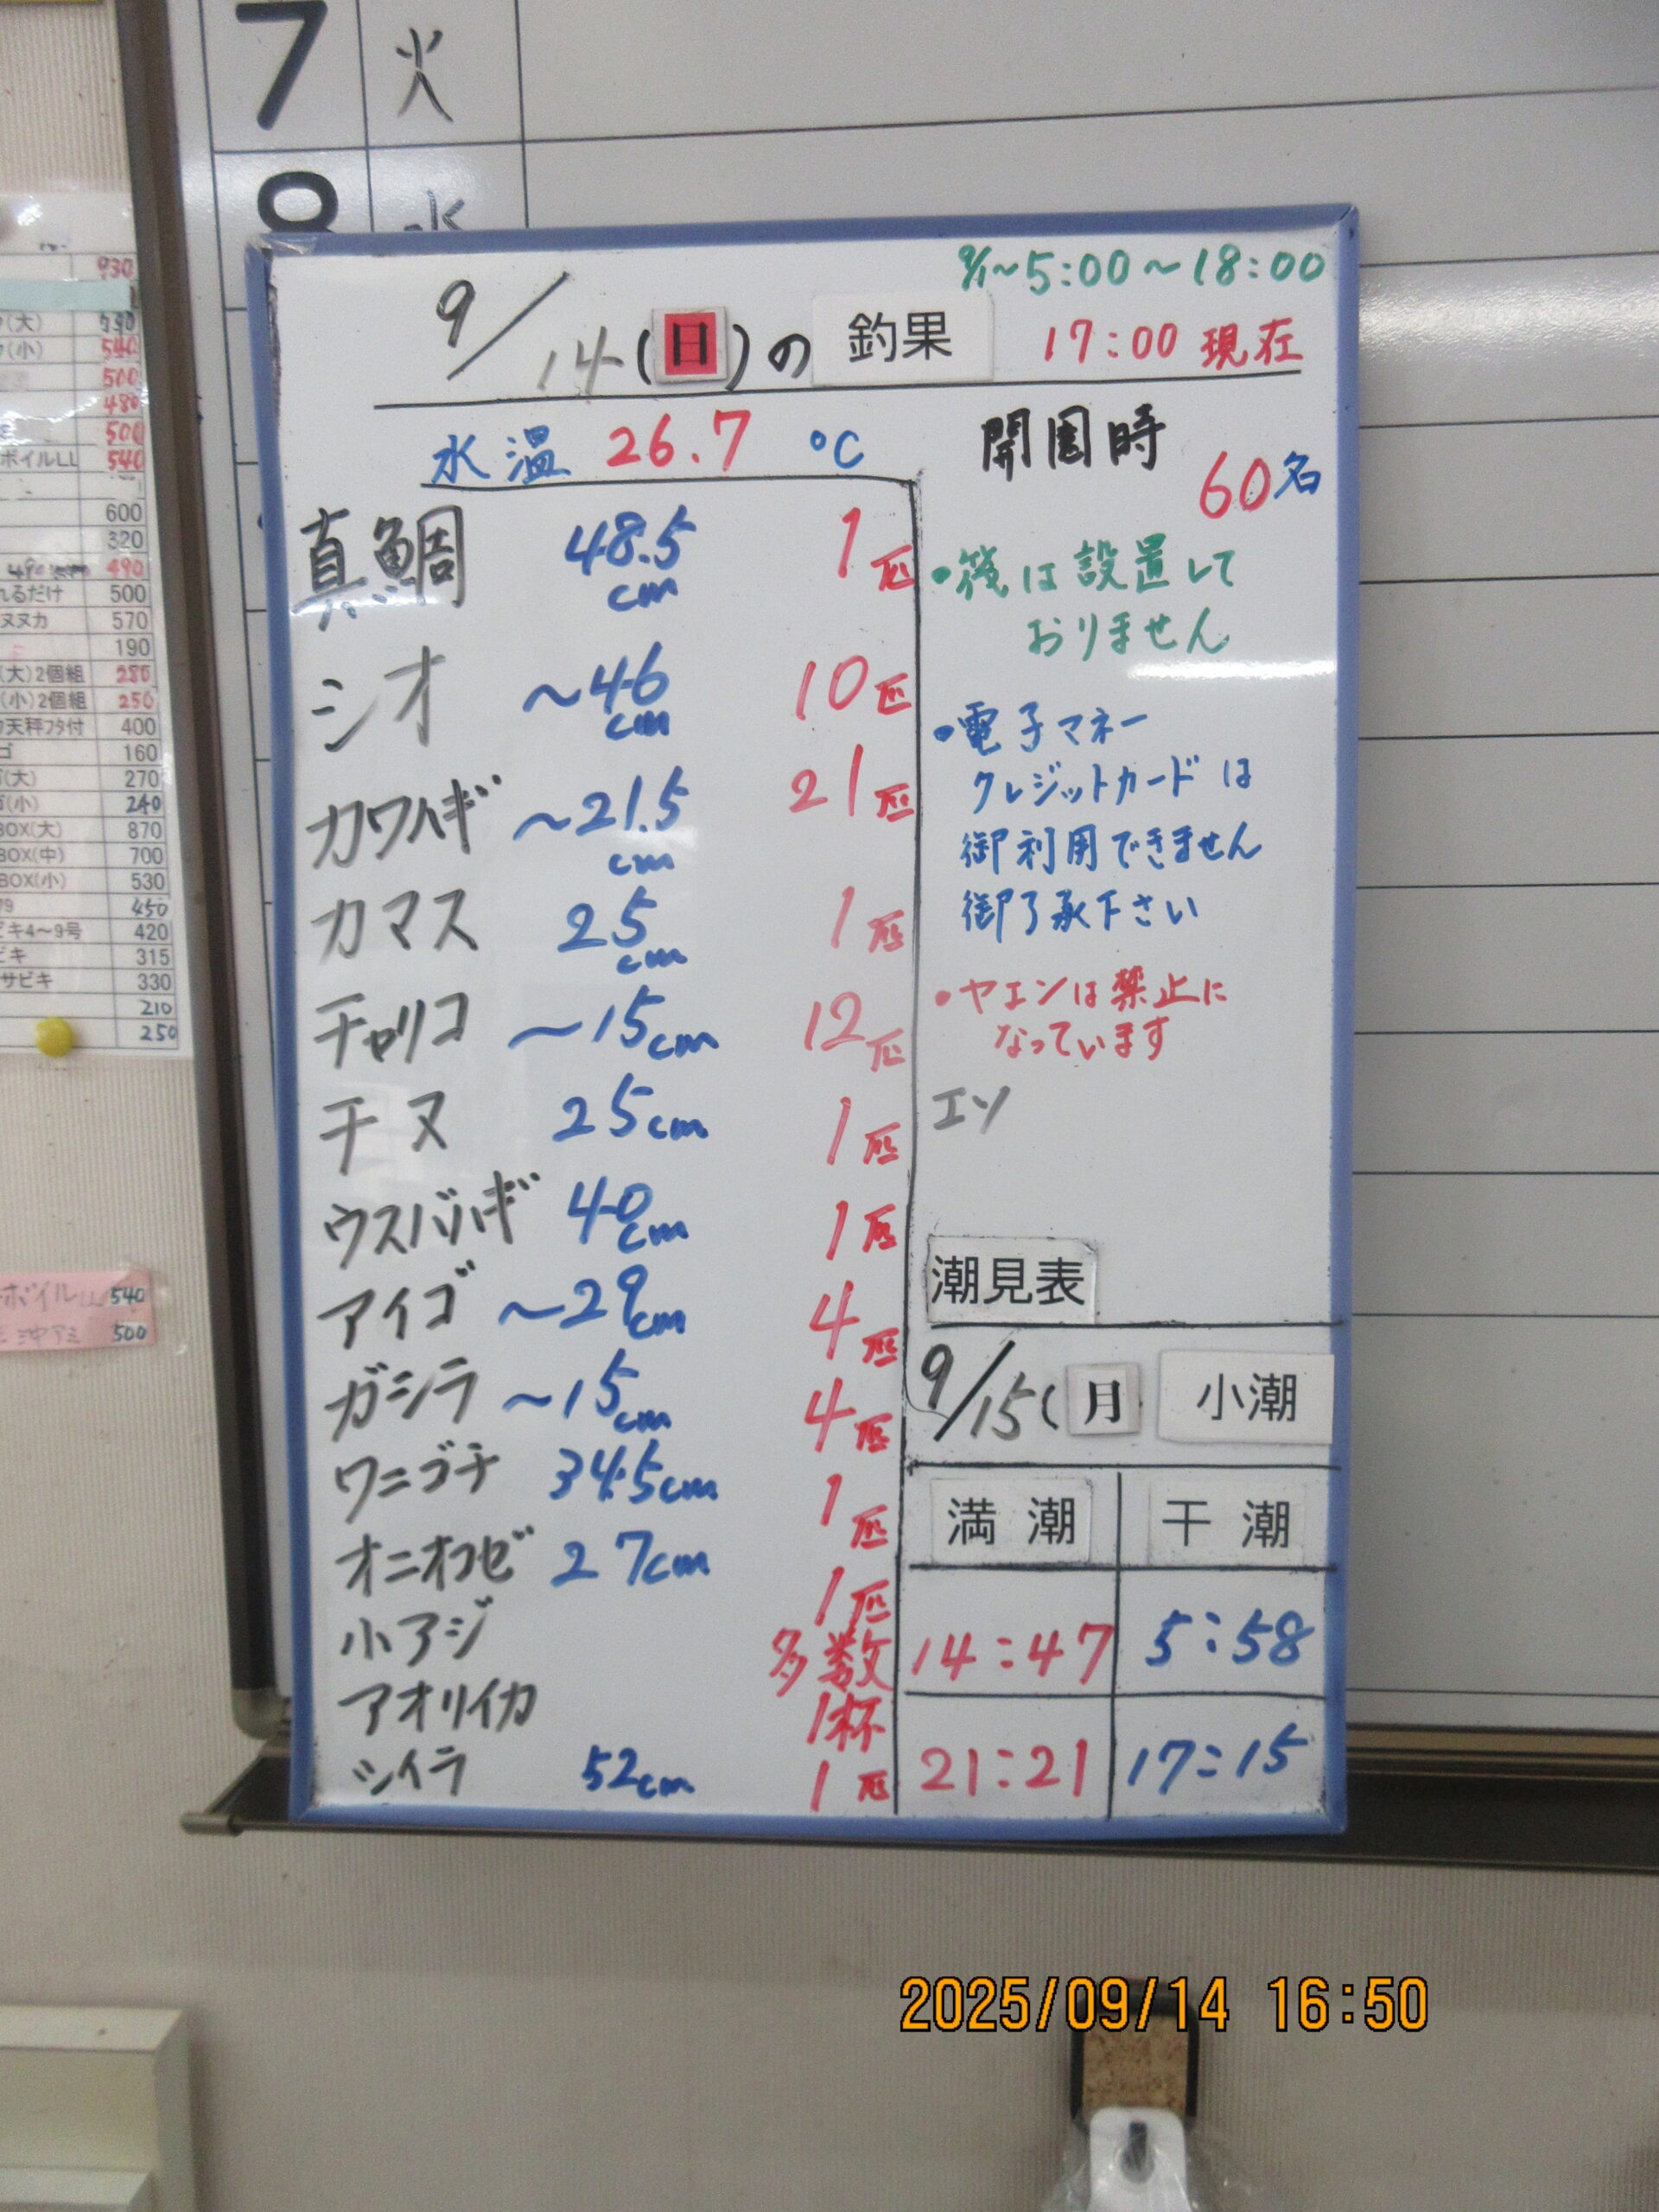 7 火
8 水
9/1~5:00~18:00
9/14(日)の 釣果 17:00 現在
水温 26.7 ℃
開園時
60名
真鯛 48.5cm 1匹
シオ ~46cm 10匹
カワハギ ~21.5cm 21匹
カマス 25cm 1匹
チャリコ ~15cm 12匹
チヌ 25cm 1匹
ウスバハギ 40cm 1匹
アイゴ ~29cm 4匹
ガシラ ~15cm 4匹
ワニゴチ 34.5cm 1匹
オニオコゼ 27cm 1匹
小アジ 多数
アオリイカ 1杯
シイラ 52cm 1匹
・筏は設置して
おりません
・電子マネー
クレジットカードは
御利用できません
御了承下さい
・ヤエンは禁止に
なっています
エソ
潮見表
9/15(月 小潮
満潮 干潮
14:47 5:58
21:21 17:15
930
(大) 590
(小) 540
500
480
500
ボイルLL 540
600
320
490
れるだけ 500
ヌカ 570
190
(大)2個組 280
(小)2個組 250
天秤フタ付 400
ゴ 160
(大) 270
(小) 240
BOX(大) 870
BOX(中) 700
BOX(小) 530
450
キ4~9号 420
ビキ 315
サビキ 330
210
250
ボイルLL 540
沖アミ 500
2025/09/14 16:50